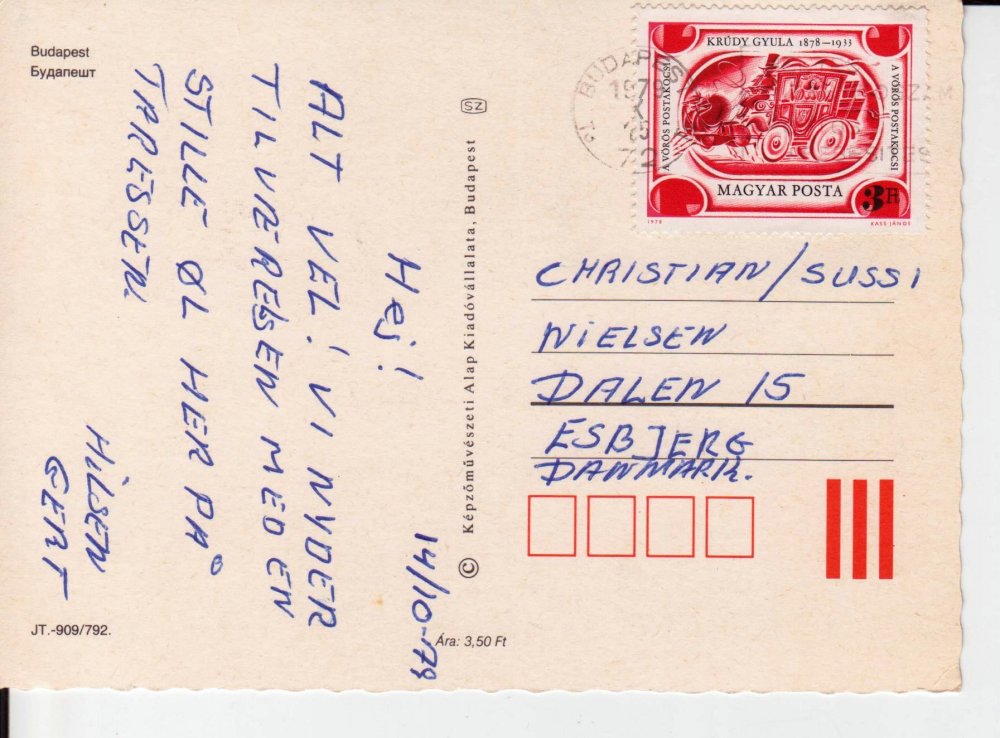 Budapest
Будапешт
14/10-79
Hej!
ALT VEL! VI NYDER
TILVÆRELSEN MED EN
STILLE ØL HER PÅ
TRAPPESSEN.
HILSEN
GERT
JT.-909/792.
SZ
© Képzőművészeti Alap Kiadóvállalata, Budapest
Ára: 3,50 Ft
BUDAPEST
72
KRÚDY GYULA 1878–1933
A VÖRÖS POSTAKOCSI
A VÖRÖS POSTAKOCSI
MAGYAR POSTA
3Ft
1978
KASS JÁNOS
CHRISTIAN/SUSSI
NIELSEN
DALEN 15
ESBJERG
DANMARK.